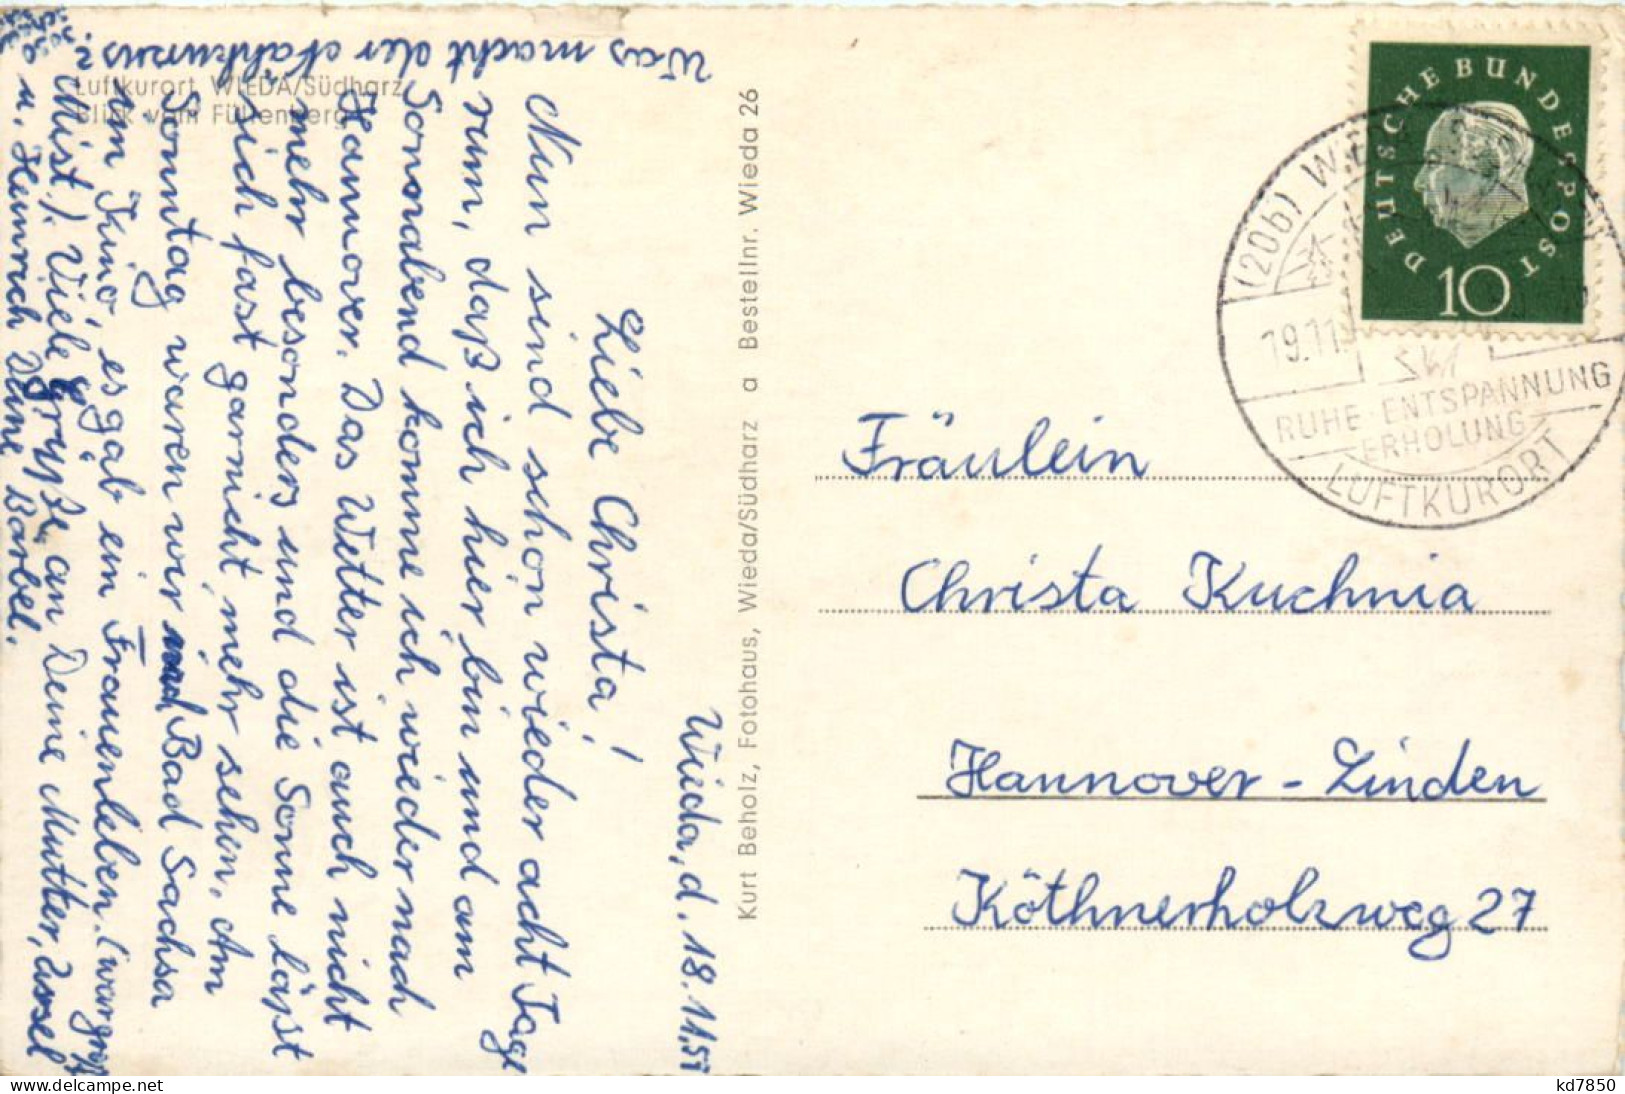 Luftkurort WIEDA/Südharz
Blick vom Füllenberg
Wieda, d. 18.11.59
Liebe Christa!
Nun sind schon wieder acht Tage
rum, daß ich hier bin und am
Sonnabend komme ich wieder nach
Hannover. Das Wetter ist auch nicht
mehr besonders und die Sonne läßt
sich fast garnicht mehr sehen. Am
Sonntag waren wir in Bad Sachsa
im Kino, es gab ein Frauenleben. (war groß
Mist). Viele Grüße an Deine Mutter, Ursel
u. Heinrich Deine Bärbel.
Was macht der Nähkursus?
Kurt Beholz, Fotohaus, Wieda/Südharz a Bestellnr. Wieda 26
DEUTSCHE BUNDESPOST
10
(20b) WIEDA
19.11.
RUHE · ENTSPANNUNG
ERHOLUNG
LUFTKURORT
Fräulein
Christa Kuchnia
Hannover - Linden
Köthnerholzweg 27
kd7850